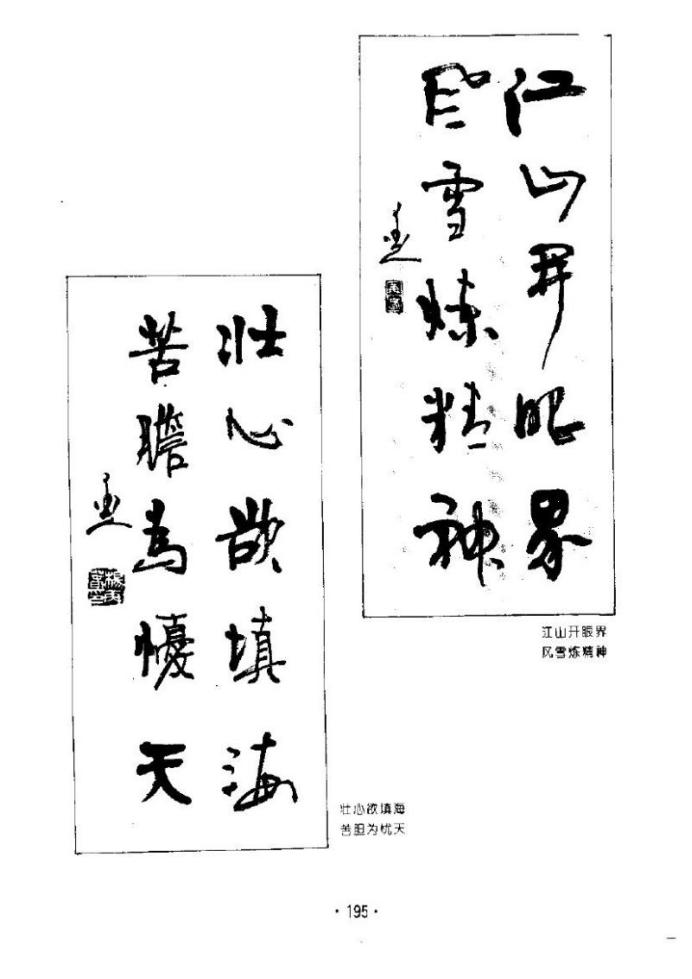 江山开眼界
风雪炼精神
江山开眼界
风雪炼精神
壮心欲填海
苦瞻為憂天
壮心欲填海
苦胆为忧天
·195·